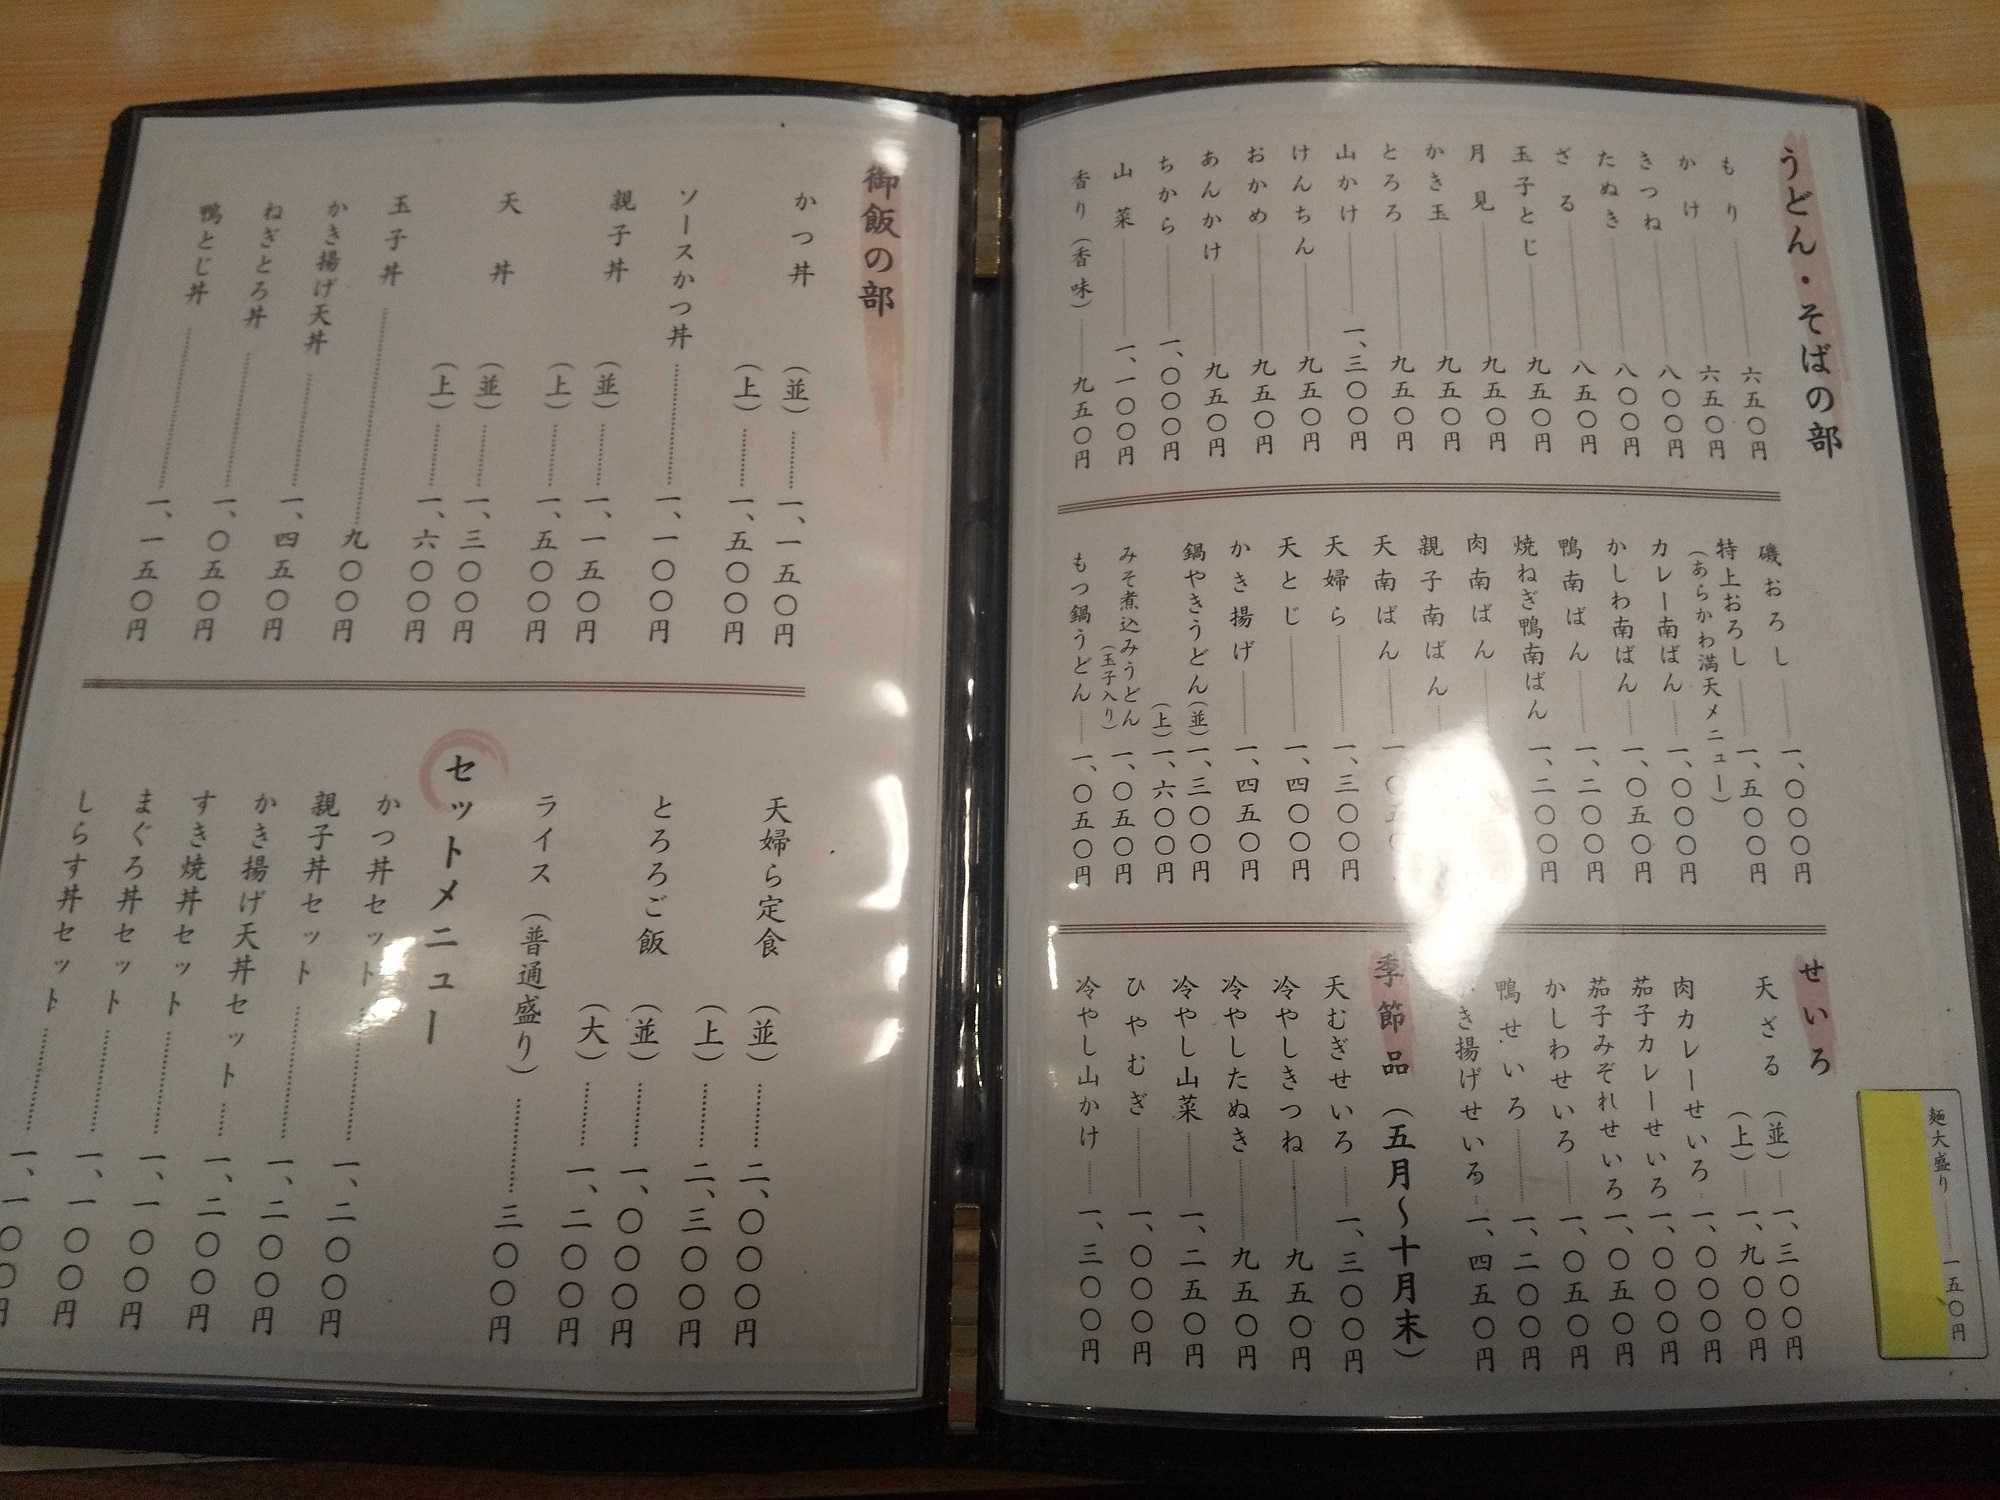 うどん・そばの部
もり 六五〇円
かけ 六五〇円
きつね 八〇〇円
たぬき 八〇〇円
ざる 八五〇円
玉子とじ 九五〇円
月見 九五〇円
かき玉 九五〇円
とろろ 九五〇円
山かけ 一、三〇〇円
けんちん 九五〇円
おかめ 九五〇円
あんかけ 九五〇円
ちから 一、〇〇〇円
山菜 一、一〇〇円
香り(香味) 九五〇円
磯おろし 一、〇〇〇円
特上おろし 一、五〇〇円
(あらかわ満天メニュー)
カレー南ばん 一、〇〇〇円
かしわ南ばん 一、〇五〇円
鴨南ばん 一、二〇〇円
焼ねぎ鴨南ばん 一、二〇〇円
肉南ばん
親子南ばん
天南ばん
天婦ら 一、三〇〇円
天とじ 一、四〇〇円
かき揚げ 一、四五〇円
鍋やきうどん(並) 一、三〇〇円
(上) 一、六〇〇円
みそ煮込みうどん 一、〇五〇円
(玉子入り)
もつ鍋うどん 一、〇五〇円
麺大盛り 一五〇円
せいろ
天ざる (並) 一、三〇〇円
(上) 一、九〇〇円
肉カレーせいろ 一、〇〇〇円
茄子カレーせいろ 一、〇〇〇円
茄子みぞれせいろ 一、〇五〇円
かしわせいろ 一、〇五〇円
鴨せいろ 一、二〇〇円
き揚げせいろ 一、四五〇円
季節品(五月〜十月末)
天むぎせいろ 一、三〇〇円
冷やしきつね 九五〇円
冷やしたぬき 九五〇円
冷やし山菜 一、二五〇円
ひやむぎ 一、〇〇〇円
冷やし山かけ 一、三〇〇円
御飯の部
かつ丼 (並) 一、一五〇円
(上) 一、五〇〇円
ソースかつ丼 一、一〇〇円
親子丼 (並) 一、一五〇円
(上) 一、五〇〇円
天丼 (並) 一、三〇〇円
(上) 一、六〇〇円
玉子丼 九〇〇円
かき揚げ天丼 一、四五〇円
ねぎとろ丼 一、〇五〇円
鴨とじ丼 一、一五〇円
天婦ら定食 (並) 二、〇〇〇円
(上) 二、三〇〇円
とろろご飯 (並) 一、〇〇〇円
(大) 一、二〇〇円
ライス(普通盛り) 三〇〇円
セットメニュー
かつ丼セット 一、二〇〇円
親子丼セット 一、二〇〇円
かき揚げ天丼セット 一、二〇〇円
すき焼丼セット 一、一〇〇円
まぐろ丼セット 一、一〇〇円
しらす丼セット 一、一〇〇円